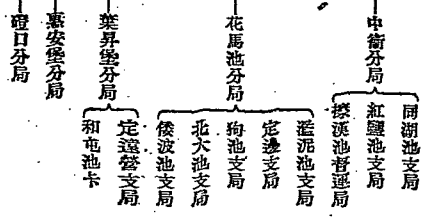 中衞分局
同湖池支局
紅鹽池支局
擦漢池督運局
花馬池分局
滥泥池支局
定邊支局
狗池支局
北大池支局
倭波池支局
葉昇堡分局
定遠營支局
和屯池卡
惠安堡分局
磴口分局